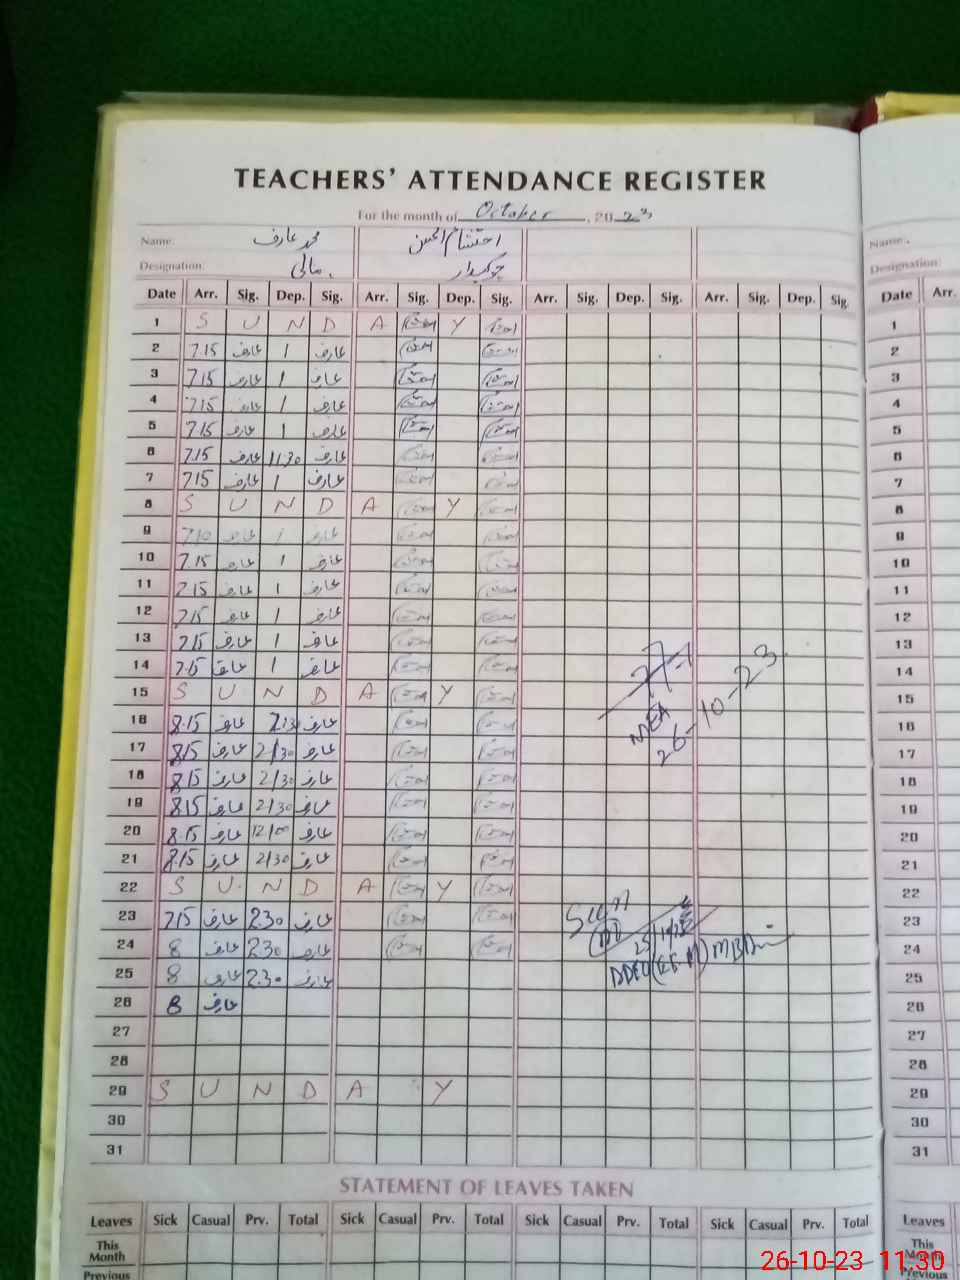 TEACHERS' ATTENDANCE REGISTER
For the month of October, 2023
Name: محمد عارف احتشام الحسن
Designation: مالی چوکیدار
Date Arr. Sig. Dep. Sig. Arr. Sig. Dep. Sig. Arr. Sig. Dep. Sig. Arr. Sig. Dep. Sig.
1 S U N D A Y
2 7.15 عارف 1 عارف
3 7.15 عارف 1 عارف
4 7.15 عارف 1 عارف
5 7.15 عارف 1 عارف
6 7.15 عارف 11.30 عارف
7 7.15 عارف 1 عارف
8 S U N D A Y
9 7.10 عارف 1 عارف
10 7.15 عارف 1 عارف
11 7.15 عارف 1 عارف
12 7.15 عارف 1 عارف
13 7.15 عارف 1 عارف
14 7.15 عارف 1 عارف
15 S U N D A Y
16 8.15 عارف 2.30 عارف
17 8.15 عارف 2/30 عارف
18 8.15 عارف 2/30 عارف
19 8.15 عارف 2/30 عارف
20 8.15 عارف 12/00 عارف
21 8.15 عارف 2/30 عارف
22 S U N D A Y
23 7.15 عارف 2.30 عارف
24 8 عارف 2.30 عارف
25 8 عارف 2.30 عارف
26 8 عارف
27
28
29 S U N D A Y
30
31
MEA
26-10-23
DDEO (EE-M) MBDin
STATEMENT OF LEAVES TAKEN
Leaves Sick Casual Prv. Total Sick Casual Prv. Total Sick Casual Prv. Total Sick Casual Prv. Total
This Month
Previous
Name.
Designation:
Date Arr.
1
2
3
4
5
6
7
8
9
10
11
12
13
14
15
16
17
18
19
20
21
22
23
24
25
26
27
28
29
30
31
Leaves
This Month
Previous
26-10-23 11.30